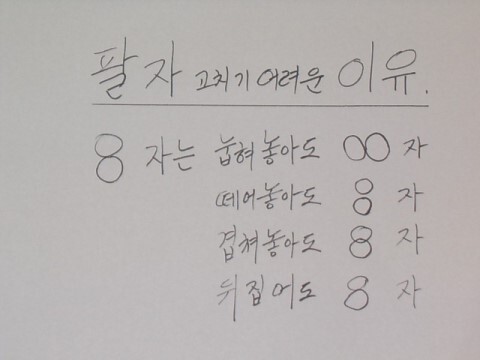 팔자 고치기 어려운 이유.
8 자는 눕혀놓아도 00 자
떼어놓아도 8 자
겹쳐놓아도 8 자
뒤집어도 8 자